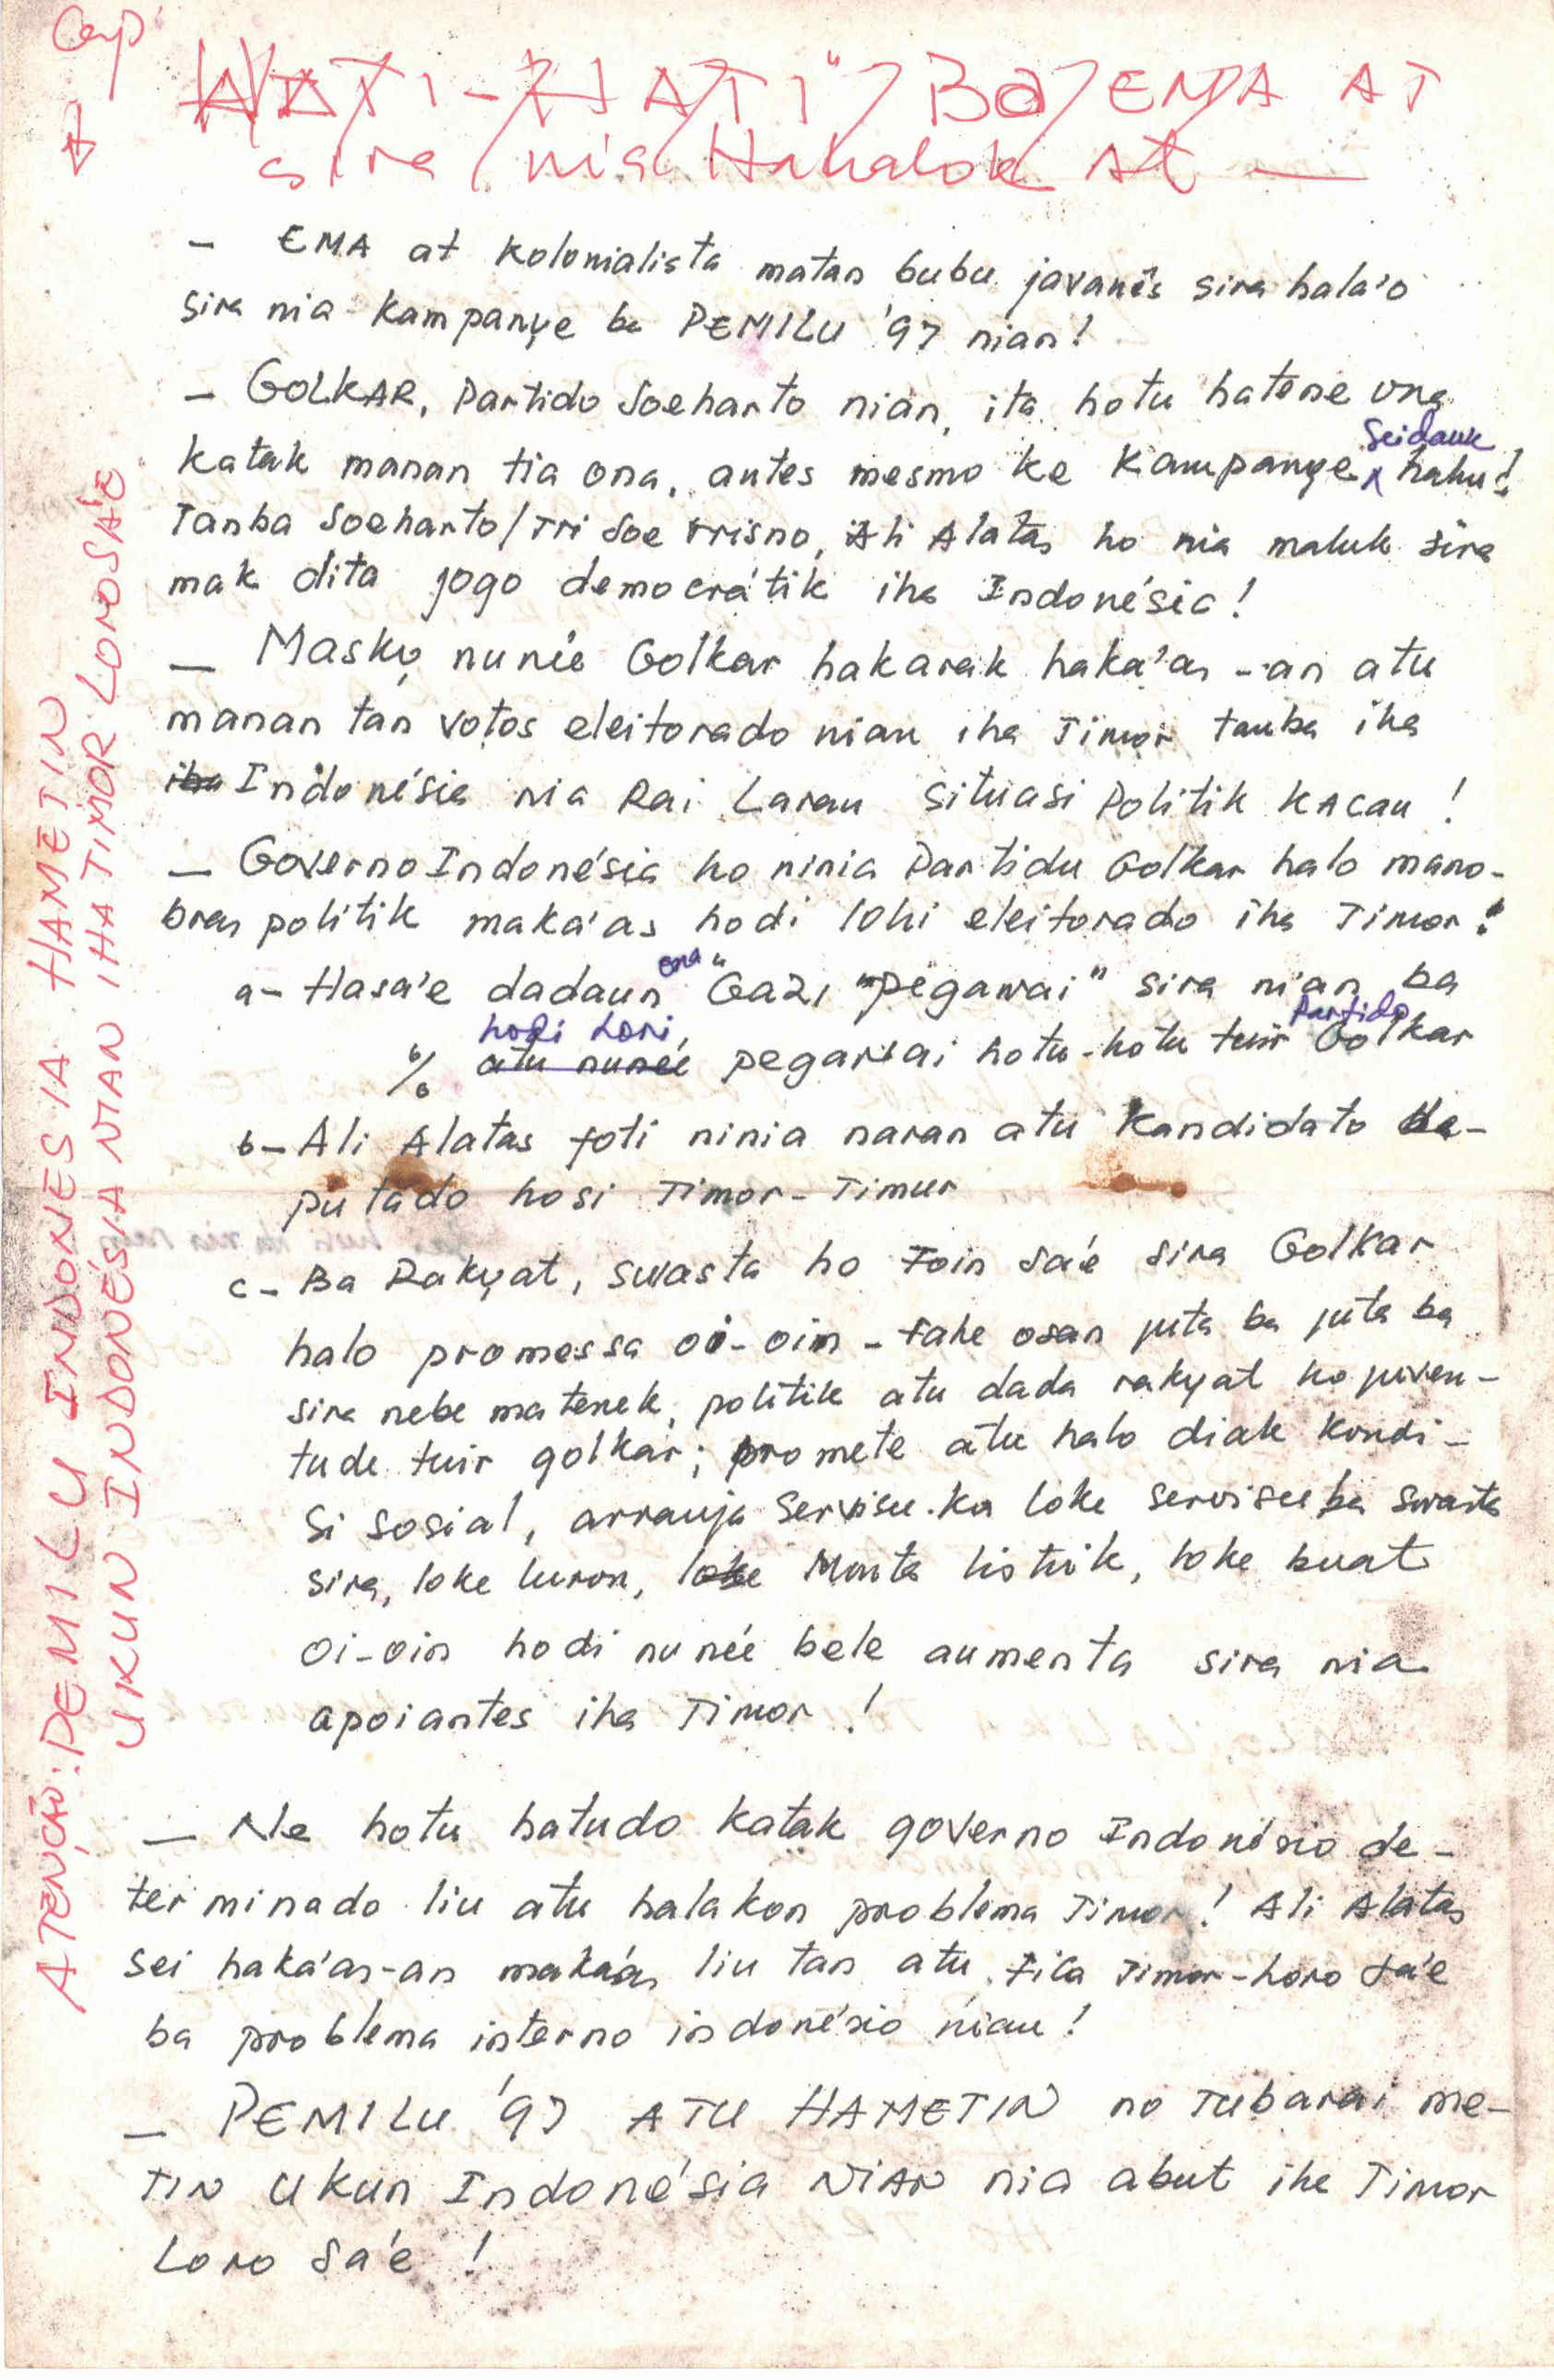 Cap
HATI-HATI" BA EMA AT
sira nia Hahalok At —
— EMA at Kolonialista matan bubu javanês sira hala'o
sira nia Kampanye ba PEMILU '97 nian!
— GOLKAR, Partido Soeharto nian, ita hotu hatene ona
Seidauk
katak manan tia ona, antes mesmo ke Kampanye hahu!
Tanba Soeharto/Tri Soe trisno, Ali Alatas ho nia maluk sira
mak dita jogo democrátik iha Indonésia!
— Masky nune'e Golkar hakarak haka'as-an atu
manan tán votos eleitorado nian iha Timor tanba iha
iha Indonésia nia Rai Laran situasi Politik KACau!
— Governo Indonésia ho ninia Partidu Golkar halo mano-
bras politik maka'as hodi lohi eleitorado iha Timor!
ona
a- Hasa'e dadaun "Gazi "Pegawai" sira nian ba
hodi Lori Partido
% atu nune'e pegawai hotu-hotu tuir Golkar
b- Ali Alatas foti ninia naran atu Kandidato de-
putado hosi Timor-Timur
c- Ba Rakyat, swasta ho Foin sa'e sira Golkar
halo promessa oi-oin - fahe osan juta ba juta ba
sira nebe matenek, politik atu dada rakyat ho juven-
tude tuir golkar; promete atu halo diak kondi-
si sosial, arranja Servisu ka loke servisu ba swasta
sira, loke luron, loke Monta listrik, loke buat
oi-oin hodi nune'e bele aumenta sira nia
apoiantes iha Timor!
— Ne hotu hatudo katak governo Indonésio de-
terminado liu atu halakon problema Timor! Ali Alatas
sei haka'as-an maka'as liu tan atu fila Timor-Loro Sa'e
ba problema interno indonésio nian!
— PEMILU '97 ATU HAMETIN no Tubarai me-
TIN Ukun Indonésia NIAN nia abut iha Timor
Loro Sa'e!
ATENÇÃO: PEMILU INDONESIA HAMETIN
UKUN INDONÉSIA NIAN IHA TIMOR LOROSA'E